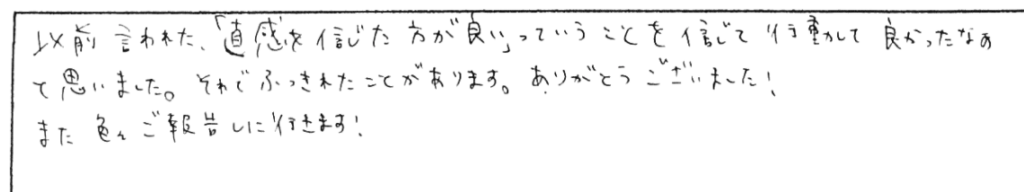 以前言われた、「直感を信じた方が良い」っていうことを信じて行動して良かったなあ
て思いました。それでふっきれたことがあります。ありがとうございました!
また色々ご報告しに行きます!